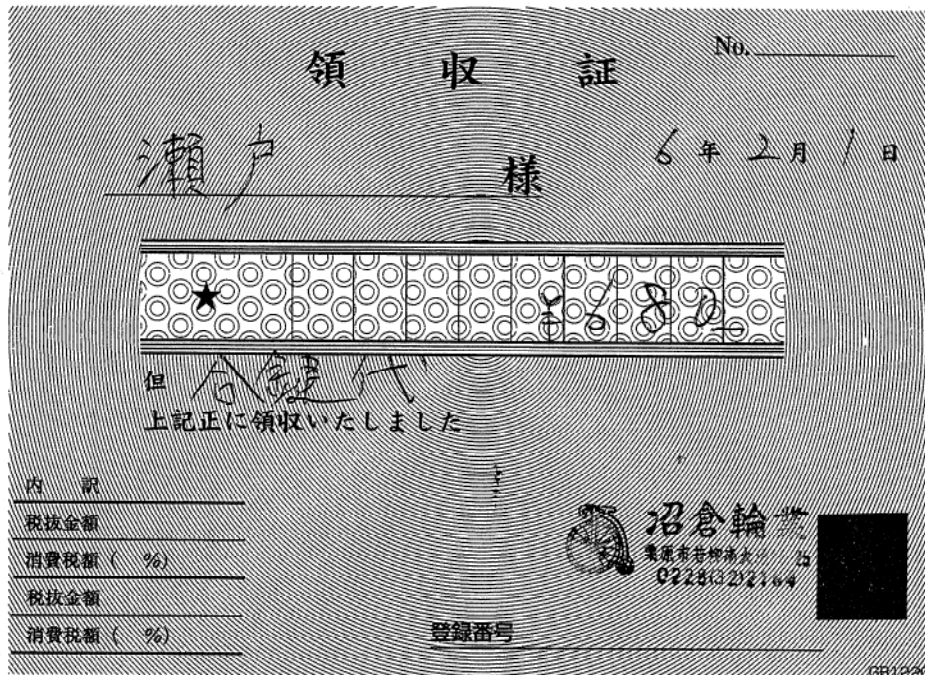 No.
領収証
瀬戸 様
6年2月1日
★ ¥680
但 合鍵代
上記正に領収いたしました
内訳
税抜金額
消費税額( %)
税抜金額
消費税額( %)
沼倉輪業
栗原市若柳
0228(32)2164
登録番号